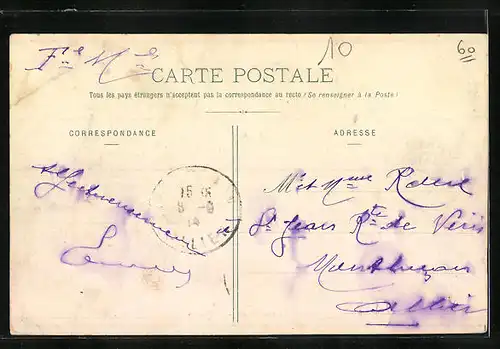 Fse Me
10
60
CARTE POSTALE
Tous les pays étrangers n'acceptent pas la correspondance au recto (Se renseigner à la Poste)
CORRESPONDANCE
ADRESSE
affectueusement
15
8 -
14
Mr et Mme
St Jean Rte de Néris
Montluçon
Allier